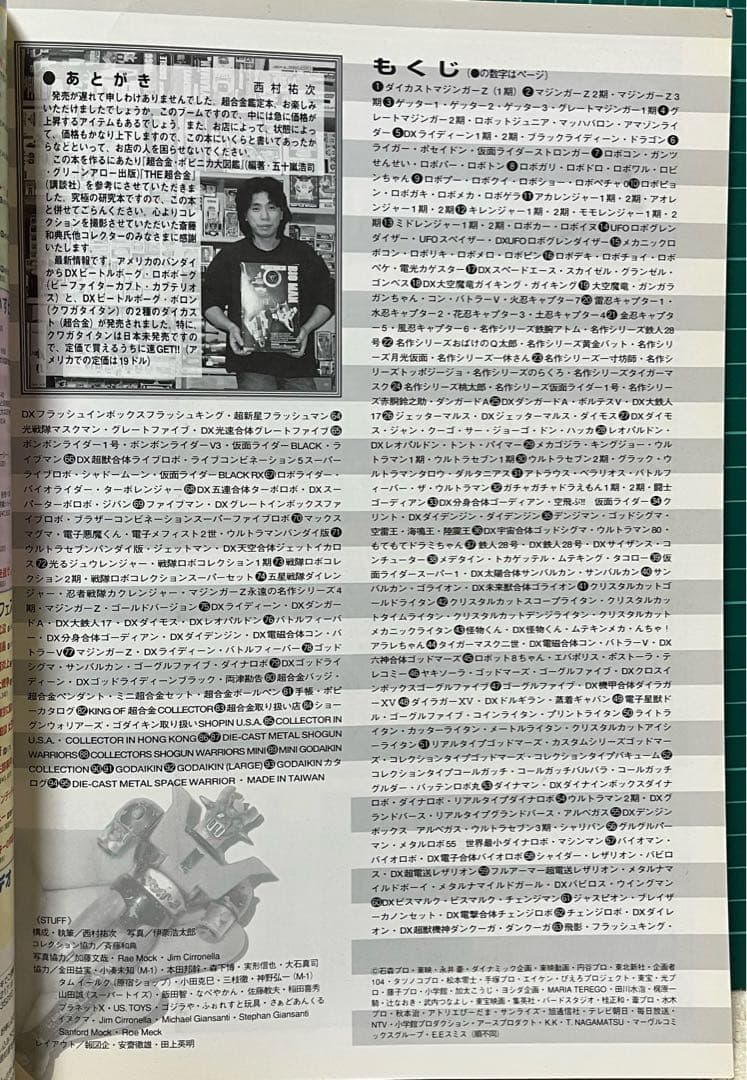 ●あとがき
西村祐次
発売が遅れて申しわけありませんでした。超合金鑑定本、お楽しみ
いただけましたでしょうか。このブームですので、中には急に価格が
上昇するアイテムもあるでしょう。また、お店によって、状態によっ
て、価格もかなり上下しますので、この本にいくらと書いてあったか
らなどといって、お店の人を困らせないでください。
この本を作るにあたり『超合金・ポピニカ大図鑑』(編著・五十嵐浩司
・グリーンアロー出版)『THE超合金』
(講談社)を参考にさせていただきま
した。究極の研究本ですので、この本
と併せてごらんください。心よりコレ
クションを撮影させていただいた斎藤
和典氏他コレクターのみなさまに感謝
いたします。
最新情報です。アメリカのバンダイ
からDXビートルボーグ・ロボボーグ
(ビーファイターカブト・カブテリオ
ス)と、DXビートルボーグ・ボロン
(クワガタイタン)の2種のダイカス
ト(超合金)が発売されました。特に、
クワガタイタンは日本未発売ですの
で、定価で買えるうちに速GET!!(ア
メリカでの定価は19ドル)
もくじ(●の数字はページ)
❶ダイカストマジンガーZ(1期)❷マジンガーZ2期・マジンガーZ3
期❸ゲッター1・ゲッター2・ゲッター3・グレートマジンガー1期❹グ
レートマジンガー2期・ロボットジュニア・マッハバロン・アマゾンライ
ダー❺DXライディーン1期・2期・ブラックライディーン・ドラゴン❻
ライガー・ポセイドン・仮面ライダーストロンガー❼ロボコン・ガンツ
せんせい・ロボパー・ロボトン❽ロボガリ・ロボドロ・ロボワル・ロビ
ンちゃん❾ロボプー・ロボクイ・ロボショー・ロボペチャ❿ロボピョ
ン・ロボガキ・ロボメカ・ロボゲラ⓫アカレンジャー1期・2期・アオレ
ンジャー1期・2期⓬キレンジャー1期・2期・モモレンジャー1期・2
期⓭ミドレンジャー1期・2期・ロボカー・ロボイヌ⓮UFOロボグレン
ダイザー・UFOスペイザー・DXUFOロボグレンダイザー⓯メカニックロ
ボコン・ロボリキ・ロボメロ・ロボピン⓰ロボデキ・ロボチョイ・ロボ
ペケ・電光カゲスター⓱DXスペードエース・スカイゼル・グランゼル・
ゴンベス⓲DX大空魔竜ガイキング・ガイキング⓳大空魔竜・ガンガラ
ガンちゃん・コン・バトラーV・火忍キャプター7⓴雷忍キャプター1・
水忍キャプター2・花忍キャプター3・土忍キャプター4㉑金忍キャプタ
ー5・風忍キャプター6・名作シリーズ鉄腕アトム・名作シリーズ鉄人28
号㉒名作シリーズおばけのQ太郎・名作シリーズ黄金バット・名作シリー
ズ月光仮面・名作シリーズ一休さん㉓名作シリーズ一寸坊師・名作シリ
ーズトッポジージョ・名作シリーズのらくろ・名作シリーズタイガーマ
スク㉔名作シリーズ桃太郎・名作シリーズ仮面ライダー1号・名作シリー
ズ赤胴鈴之助・ダンガードA㉕DXダンガードA・ボルテスV・DX大鉄人
17㉖ジェッターマルス・DXジェッターマルス・ダイモス㉗DXダイモ
ス・ジャン・クーゴ・サー・ジョーゴ・ドン・ハッカ㉘レオパルドン・
DXレオパルドン・トント・バイマー㉙メカゴジラ・キングジョー・ウル
トラマン1期・ウルトラセブン1期㉚ウルトラセブン2期・グラック・ウ
ルトラマンタロウ・ダルタニアス㉛アトラウス・ベラリオス・バトルフ
ィーバー・ザ・ウルトラマン㉜ガチャガチャドラえもん1期・2期・闘士
ゴーディアン㉝DX分身合体ゴーディアン・空飛ぶ!! 仮面ライダー㉞ク
リント・DXダイデンジン・ダイデンジン㉟デンジマン・ゴッドシグマ・
空雷王・海鳴王・陸震王㊱DX宇宙合体ゴッドシグマ・ウルトラマン80・
もてもてドラミちゃん㊲鉄人28号・DX鉄人28号・DXサイザンス・コ
ンチューター㊳メデタイン・トカゲッテル・ムテキング・タコロー㊴仮
面ライダースーパー1・DX太陽合体サンバルカン・サンバルカン㊵サン
バルカン・ゴライオン・DX未来獣合体ゴライオン㊶クリスタルカットゴ
ールドライタン㊷クリスタルカットスコープライタン・クリスタルカッ
トタイムライタン・クリスタルカットデンジライタン・クリスタルカット
メカニックライタン㊸怪物くん・DX怪物くん・ムテキンメカ・んちゃ!
アラレちゃん㊹タイガーマスク二世・DX電磁合体コン・バトラーV・DX
六神合体ゴッドマーズ㊺ロボット8ちゃん・エバポリス・ポストーラ・テ
レコミー㊻ヤキソーラ・ゴッドマーズ・ゴーグルファイブ・DXクロスイ
ンボックスゴーグルファイブ㊼ゴーグルファイブ・DX機甲合体ダイラガ
ーXV㊽ダイラガーXV・DXドルギラン・蒸着ギャバン㊾電子星獣ド
ル・ゴーグルファイブ・コインライタン・プリントライタン㊿ライトラ
イタン・カッターライタン・メートルライタン・クリスタルカットアイシ
ーライタン51リアルタイプゴッドマーズ・カスタムシリーズゴッドマー
ズ・コレクションタイプゴッドマーズ・コレクションタイプバキューム52
コレクションタイプコールガッチ・コールガッチバルバラ・コールガッチ
グルダー・バッテンロボ丸53ダイナマン・DXダイナインボックスダイナ
ロボ・ダイナロボ・リアルタイプダイナロボ54ウルトラマン2期・DXグ
ランドバース・リアルタイプグランドバース・アルベガス55DXデンジン
ボックス アルベガス・ウルトラセブン3期・シャリバン56グルグルバー
マン・メタルロボ55 世界最小ダイナロボ・マシンマン57バイオマン・
バイオロボ・DX電子合体バイオロボ58シャイダー・レザリオン・バビロ
ス・DX超電送レザリオン59フルアーマー超電送レザリオン・メタルナマ
イルドボーイ・メタルナマイルドガール・DXバビロス・ウイングマン
60DXビスマルク・ビスマルク・チェンジマン61ジャスピオン・ブレイザ
ーカノンセット・DX電撃合体チェンジロボ62チェンジロボ・DXダイレ
オン・DX超獣機神ダンクーガ・ダンクーガ63飛影・フラッシュキング・
DXフラッシュインボックスフラッシュキング・超新星フラッシュマン64
光戦隊マスクマン・グレートファイブ・DX光速合体グレートファイブ65
ボンボンライダー1号・ボンボンライダーV3・仮面ライダーBLACK・ラ
イブマン66DX超獣合体ライブロボ・ライブコンビネーション5スーパー
ライブロボ・シャドームーン・仮面ライダーBLACK RX67ロボライダー・
バイオライダー・ターボレンジャー68DX五連合体ターボロボ・DXスー
パーターボロボ・ジバン69ファイブマン・DXグレートインボックスファ
イブロボ・ブラザーコンビネーションスーパーファイブロボ70マックス
マグマ・電子悪魔くん・電子メフィスト2世・ウルトラマンバンダイ版71
ウルトラセブンバンダイ版・ジェットマン・DX天空合体ジェットイカロ
ス72光るジュウレンジャー・戦隊ロボコレクション1期73戦隊ロボコレ
クション2期・戦隊ロボコレクションスーパーセット74五星戦隊ダイレン
ジャー・忍者戦隊カクレンジャー・マジンガーZ永遠の名作シリーズ4
期・マジンガーZ・ゴールドバージョン75DXライディーン・DXダンガー
ドA・DX大鉄人17・DXダイモス・DXレオパルドン76バトルフィーバ
ー・DX分身合体ゴーディアン・DXダイデンジン・DX電磁合体コン・バ
トラーV77マジンガーZ・ライディーン・バトルフィーバー78ゴッド
シグマ・サンバルカン・ゴーグルファイブ・ダイナロボ79DXゴッドライ
ディーン・DXゴッドライディーンブラック・両津勘吉80超合金バッジ・
超合金ペンダント・ミニ超合金セット・超合金ボールペン81手帳・ポピ
ーカタログ82KING OF 超合金 COLLECTOR83超合金取り扱い店84ショー
グンウォリアーズ・ゴダイキン取り扱いSHOPIN U.S.A.85COLLECTOR IN
U.S.A.・COLLECTOR IN HONG KONG86・87DIE-CAST METAL SHOGUN
WARRIORS88COLLECTORS SHOGUN WARRIORS MINI89MINI GODAIKIN
COLLECTION90・91GODAIKIN92GODAIKIN (LARGE)93GODAIKINカタ
ログ94・95DIE-CAST METAL SPACE WARRIOR・MADE IN TAIWAN
《STUFF》
構成・執筆/西村祐次 写真/伊奈浩太郎
コレクション協力/斉藤和典
写真協力/加藤文哉・Rae Mock・Jim Cirronella
協力/金田益実・小湊未知(M-1)・本田邦幹・森下博・実形信也・大石真司
タム イールク(原宿ショップ)・小田克巳・三枝徹・神野弘一(M-1)
山田誠(スーパートイズ)・飯田智・なべやかん・佐藤教夫・稲田喜秀
プラネットX・US.TOYS・ゴジラや・ふぉれすと玩具・さぁどあんくる
イスクマ・Jim Cirronella・Michael Giansanti・Stephan Giansanti
Sanford Mock・Roe Meck
レイアウト/報図企・安齋徹雄・田上英明
©石森プロ・東映・永井豪・ダイナミック企画・東映動画・円谷プロ・東北新社・企画者
104・タツノコプロ・松本零士・手塚プロ・エイケン・ぴえろプロジェクト・東宝・光プ
ロ・藤子プロ・小学館・加太こうじ・ヨシダ企画・MARIA TEREGO・田川水泡・梶原一
騎・辻なおき・武内つなよし・東宝映画・集英社・バードスタジオ・桂正和・葦プロ・水木
プロ・秋本治・アトリエびーだま・サンライズ・旭通信社・テレビ朝日・毎日放送・
NTV・小学館プロダクション・アースプロダクト・K.K・T. NAGAMATSU・マーヴルコミ
ックスグループ・E.Eスミス(順不同)